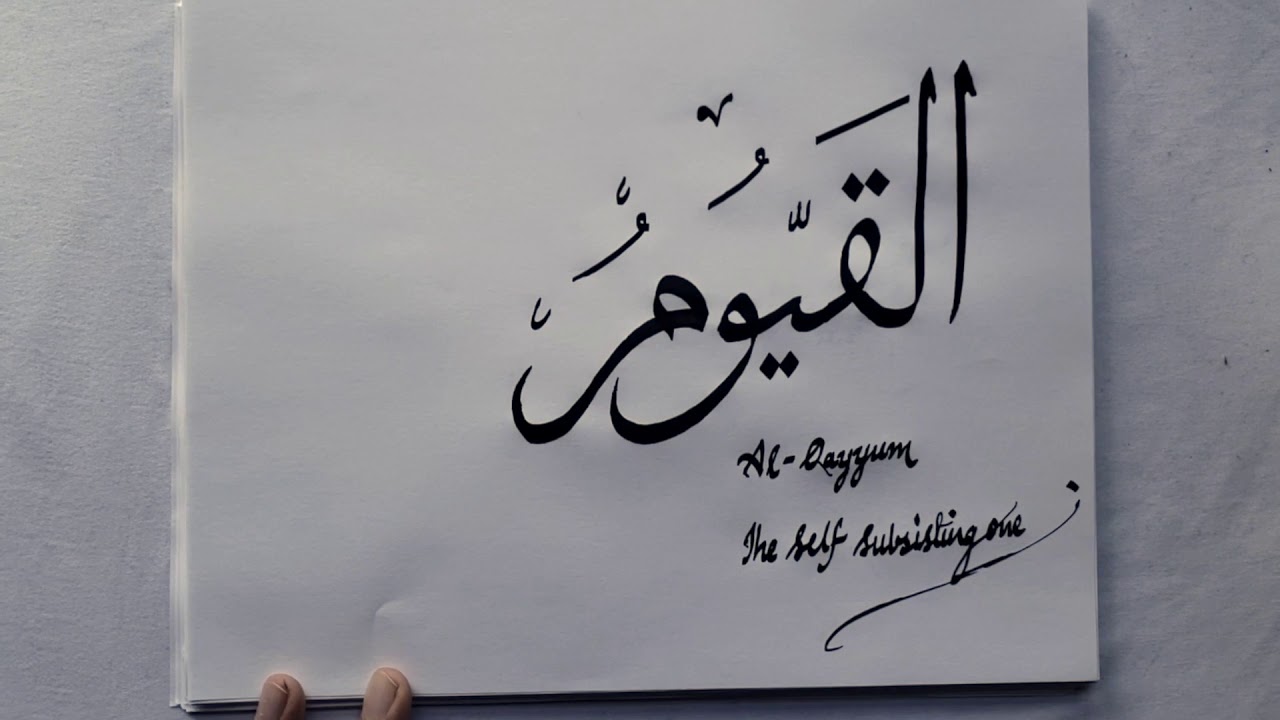 القَيُّومُ
Al-Qayyum
The Self Subsisting one